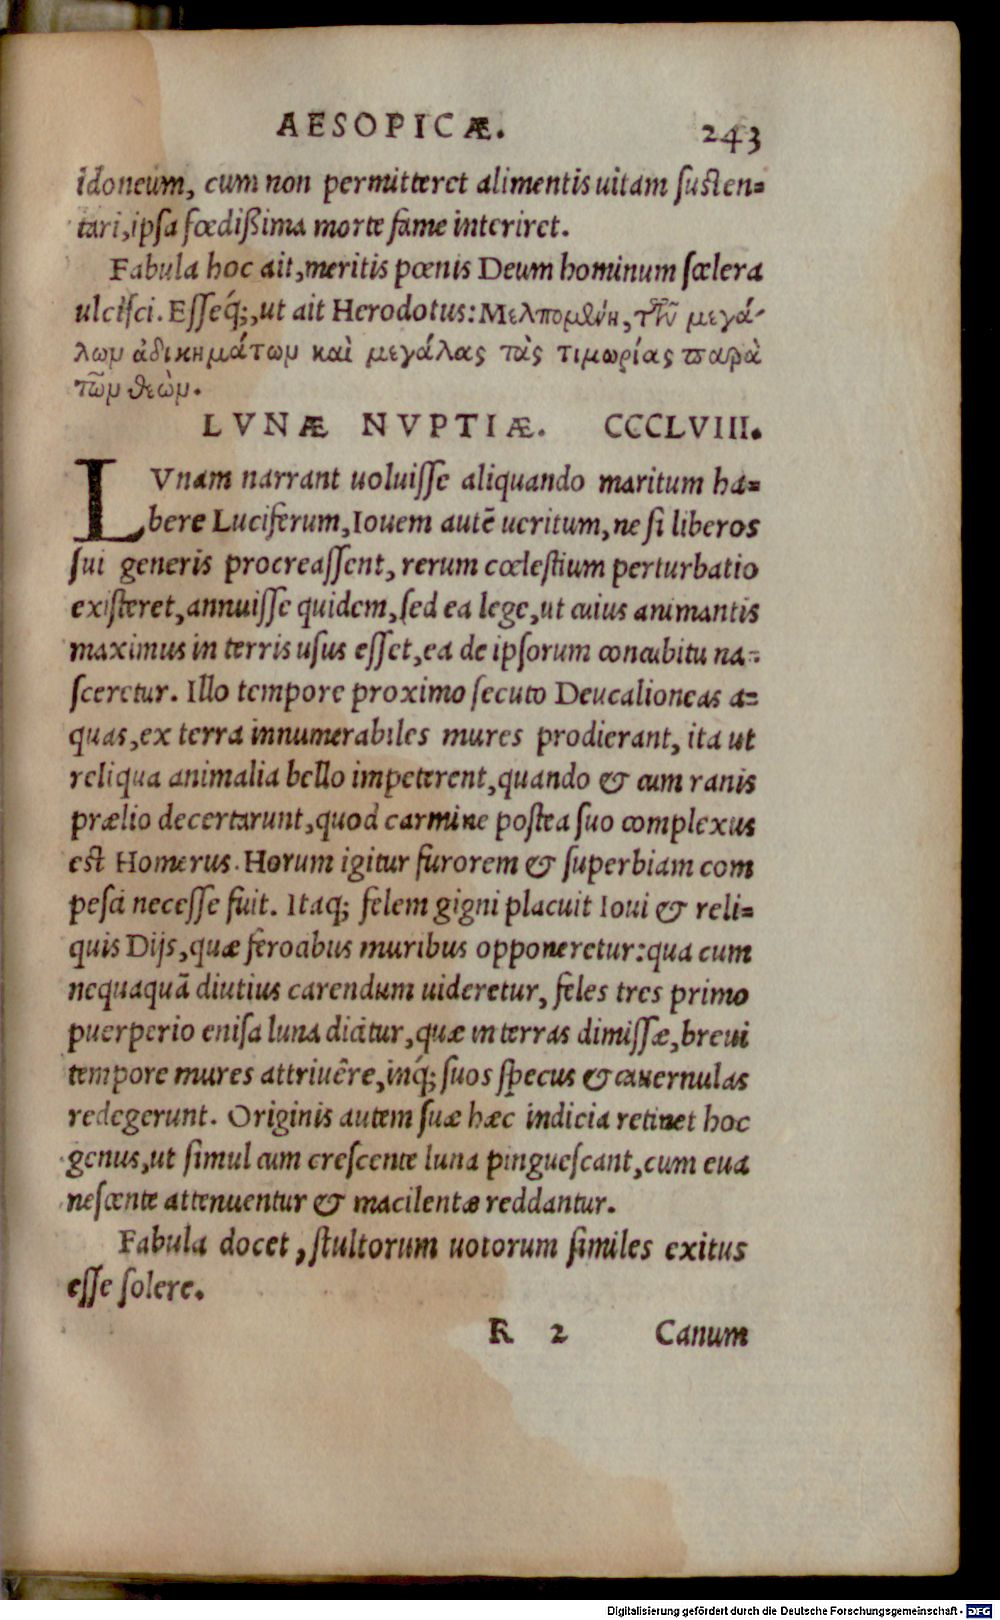 AESOPICÆ. 243
idoneum, cum non permitteret alimentis uitam susten=
tari, ipsa fœdißima morte fame interiret.
Fabula hoc ait, meritis pœnis Deum hominum scelera
ulcisci. Esseq́;, ut ait Herodotus: Μελπομένη, τῶν μεγά-
λων ἀδικημάτων καὶ μεγάλας τὰς τιμωρίας παρὰ
τῶν θεῶν.
LVNÆ NVPTIÆ. CCCLVIII.
LVnam narrant uoluisse aliquando maritum ha=
bere Luciferum, Iouem autē ueritum, ne si liberos
sui generis procreassent, rerum cœlestium perturbatio
existeret, annuisse quidem, sed ea lege, ut cuius animantis
maximus in terris usus esset, ea de ipsorum concubitu na=
sceretur. Illo tempore proximo secuto Deucalioneas a=
quas, ex terra innumerabiles mures prodierant, ita ut
reliqua animalia bello impeterent, quando & cum ranis
prælio decertarunt, quod carmine postea suo complexus
est Homerus. Horum igitur furorem & superbiam com
pesci necesse fuit. Itaq; felem gigni placuit Ioui & reli=
quis Dijs, quæ ferocibus muribus opponeretur: qua cum
nequaquā diutius carendum uideretur, feles tres primo
puerperio enisa luna dicitur, quæ in terras dimissæ, breui
tempore mures attriuêre, inq́; suos specus & cauernulas
redegerunt. Originis autem suæ hæc indicia retinet hoc
genus, ut simul cum crescente luna pinguescant, cum eua
nescente attenuentur & macilentæ reddantur.
Fabula docet, stultorum uotorum similes exitus
esse solere.
R 2 Canum
Digitalisierung gefördert durch die Deutsche Forschungsgemeinschaft - DFG